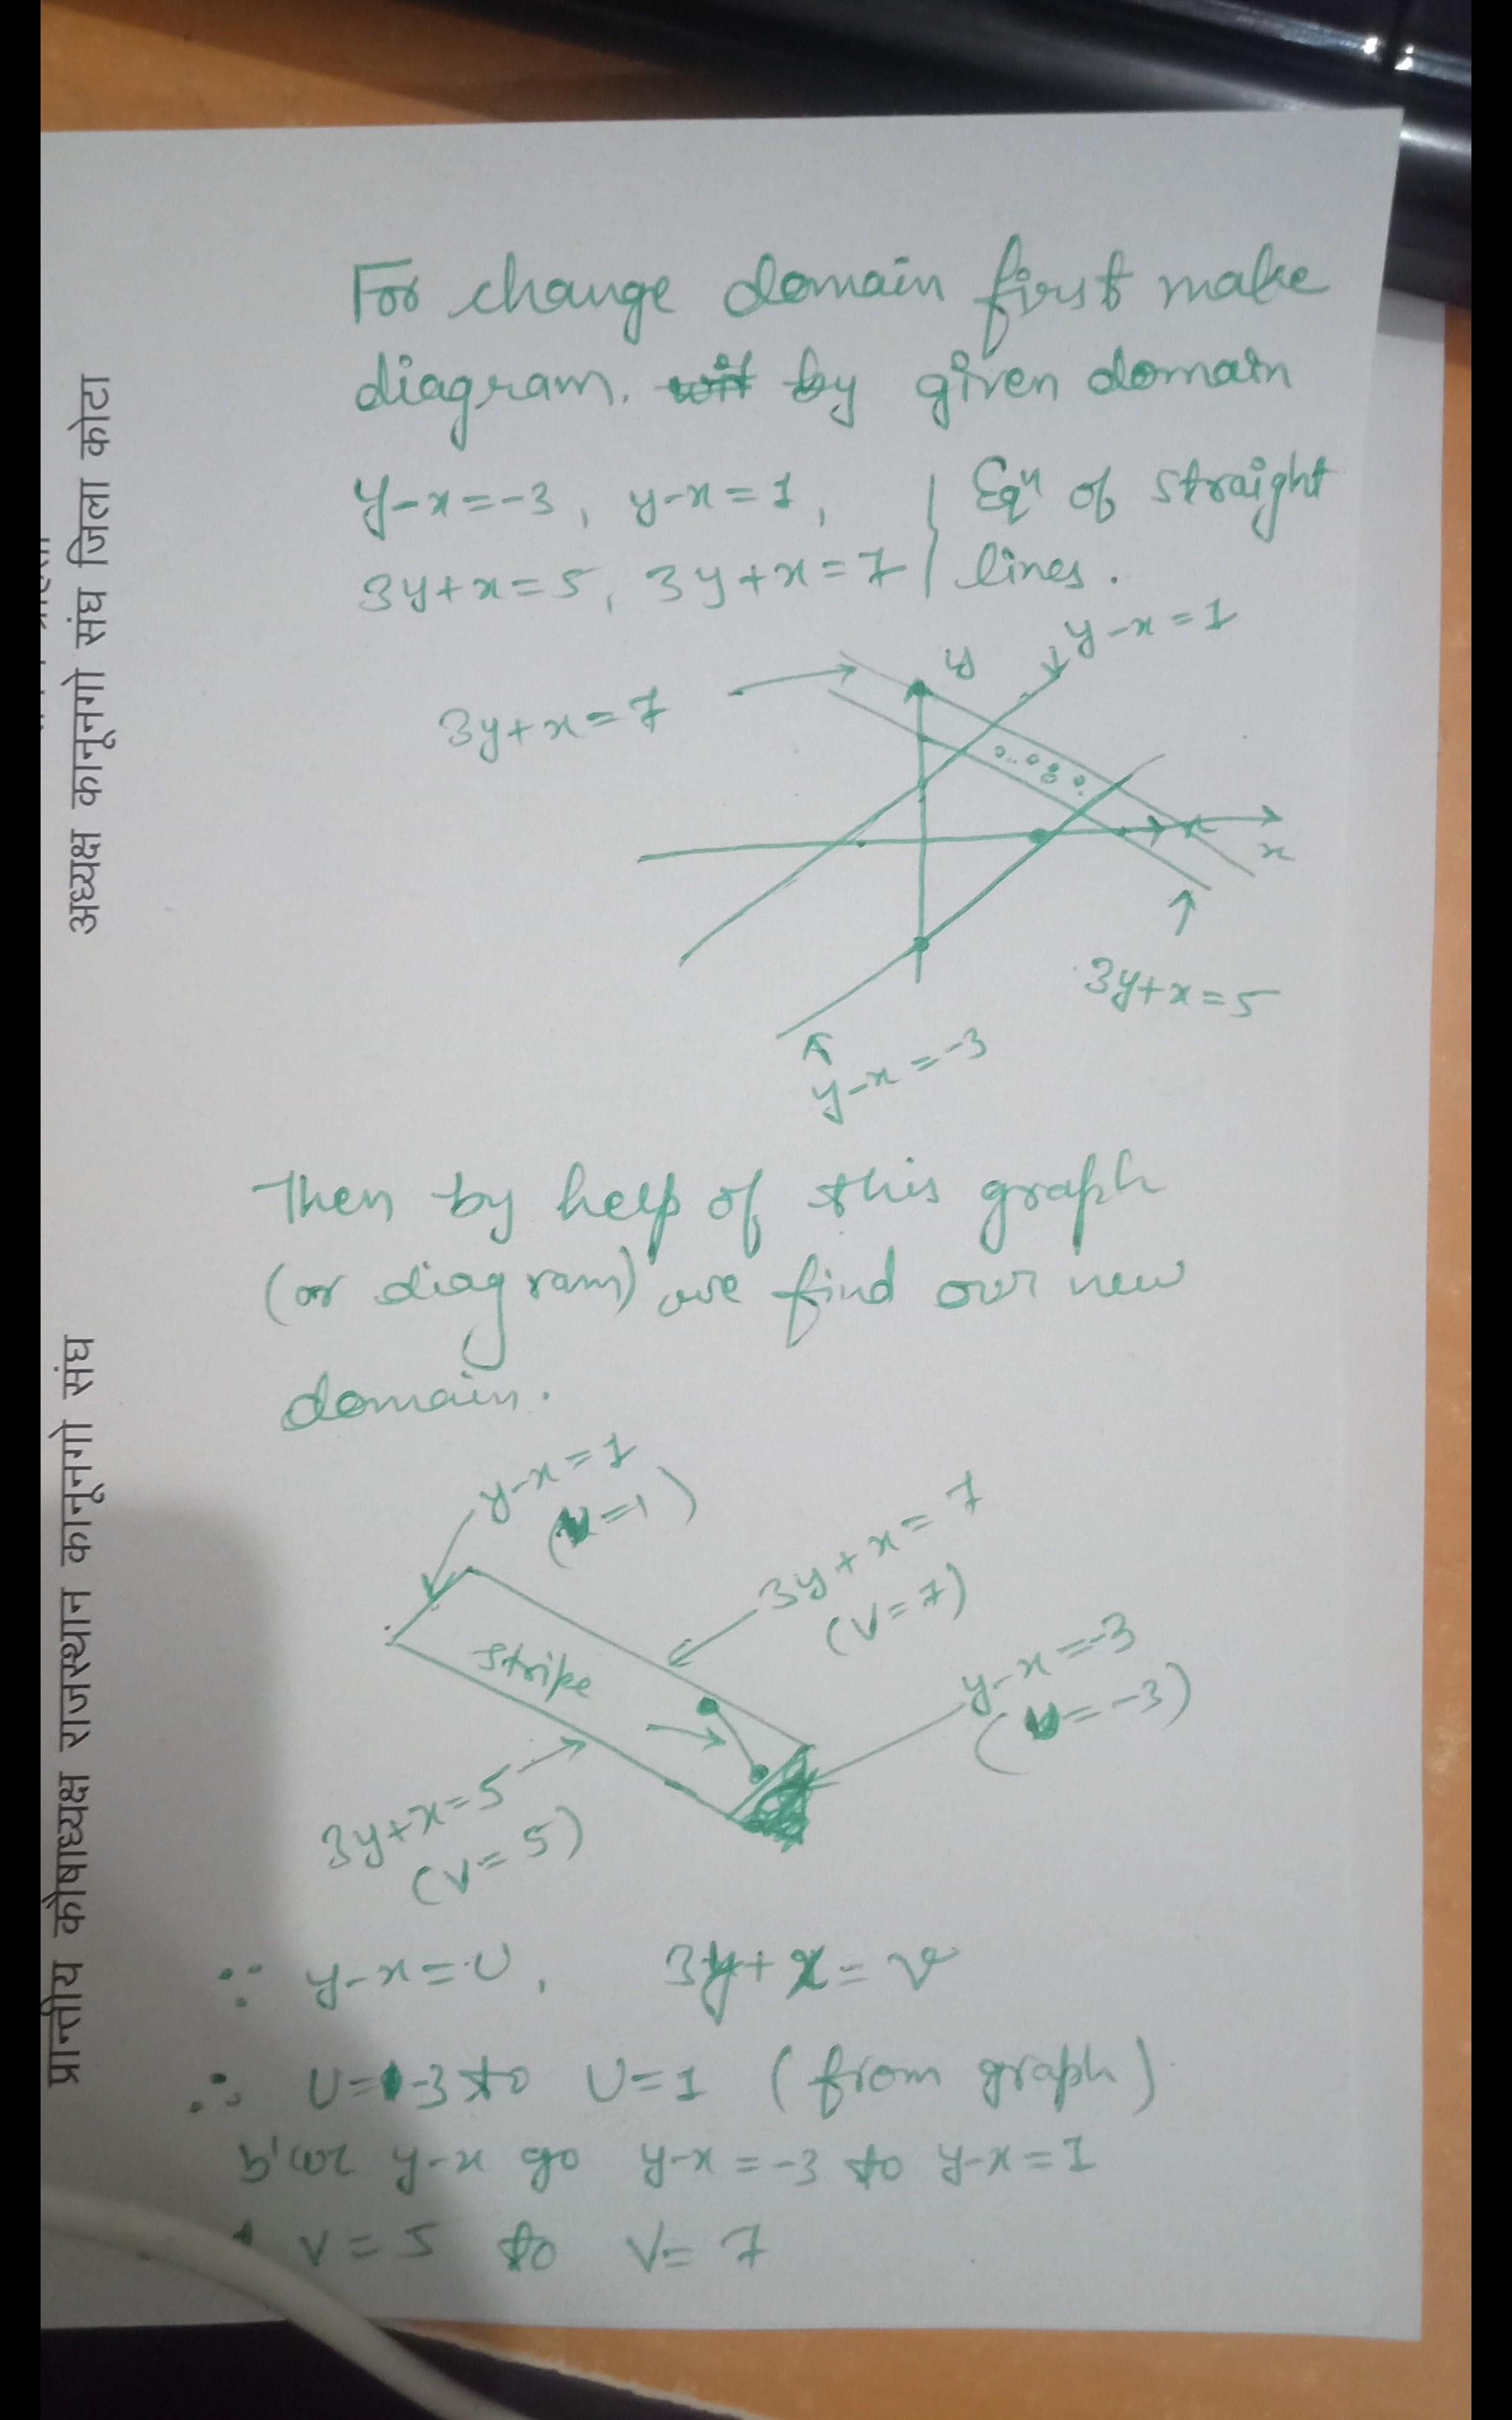 For change domain first make
diagram. by given domain
y-x=-3, y-x=1, | Eqⁿ of straight
3y+x=5, 3y+x=7 | lines.
y-x=1
y
3y+x=7
x
3y+x=5
y-x=-3
Then by help of this graph
(or diagram) we find our new
domain.
y-x=1
(u=1)
3y+x=7
(V=7)
stripe
y-x=-3
(u=-3)
3y+x=5
(V=5)
∵ y-x=U, 3y+x=v
∴ U=-3 to U=1 (from graph)
b'coz y-x go y-x=-3 to y-x=1
V=5 to V=7
अध्यक्ष कानूनगो संघ जिला कोटा
प्रान्तीय कोषाध्यक्ष राजस्थान कानूनगो संघ